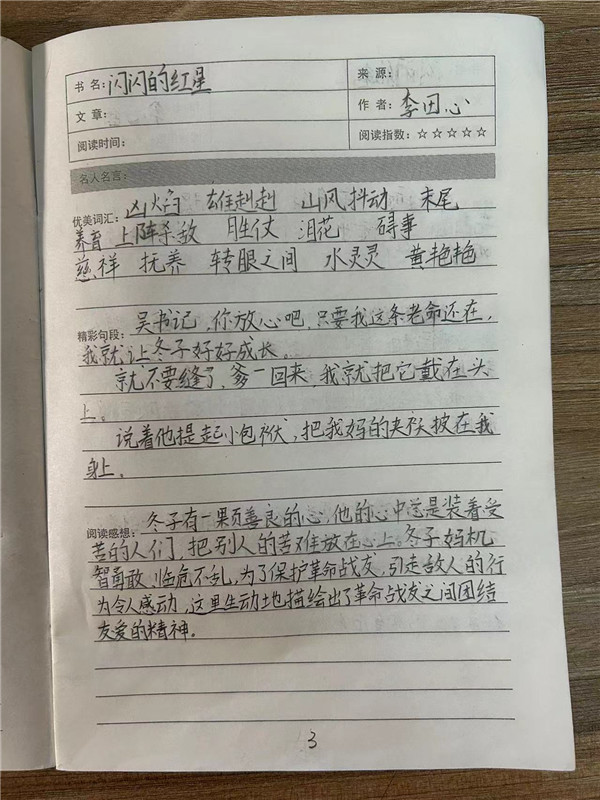 书名:闪闪的红星
来源:
文章:
作者:李田心
阅读时间:
阅读指数:☆☆☆☆☆
名人名言:
优美词汇:凶焰 雄赳赳 山风抖动 末尾
养育 上阵杀敌 胜仗 泪花 碍事
慈祥 抚养 转眼之间 水灵灵 黄艳艳
精彩句段:吴书记,你放心吧,只要我这条老命还在,
我就让冬子好好成长。
就不要缝了,爹一回来,我就把它戴在头
上。
说着他提起小包袱,把我妈的夹袄披在我
身上。
阅读感想:冬子有一颗善良的心,他的心中总是装着受
苦的人们,把别人的苦难放在心上。冬子妈机
智勇敢,临危不乱,为了保护革命战友,引走敌人的行
为令人感动,这里生动地描绘出了革命战友之间团结
友爱的精神.
3